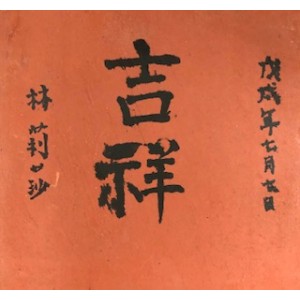 戊戌年七月七日
吉祥
林莉沙